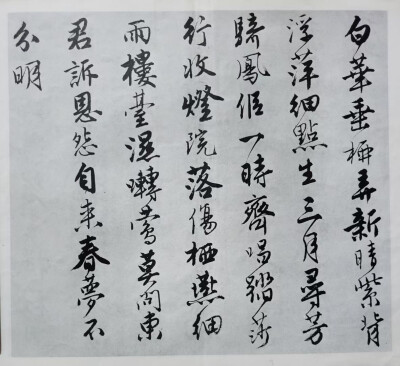 白華垂柳弄新晴紫背
浮萍細點生三月尋芳
驕鳳侶一時齊唱踏莎
行收燈院落傷栖燕細
雨樓臺濕囀鶯莫向東
君訴恩怨自来春夢不
分明